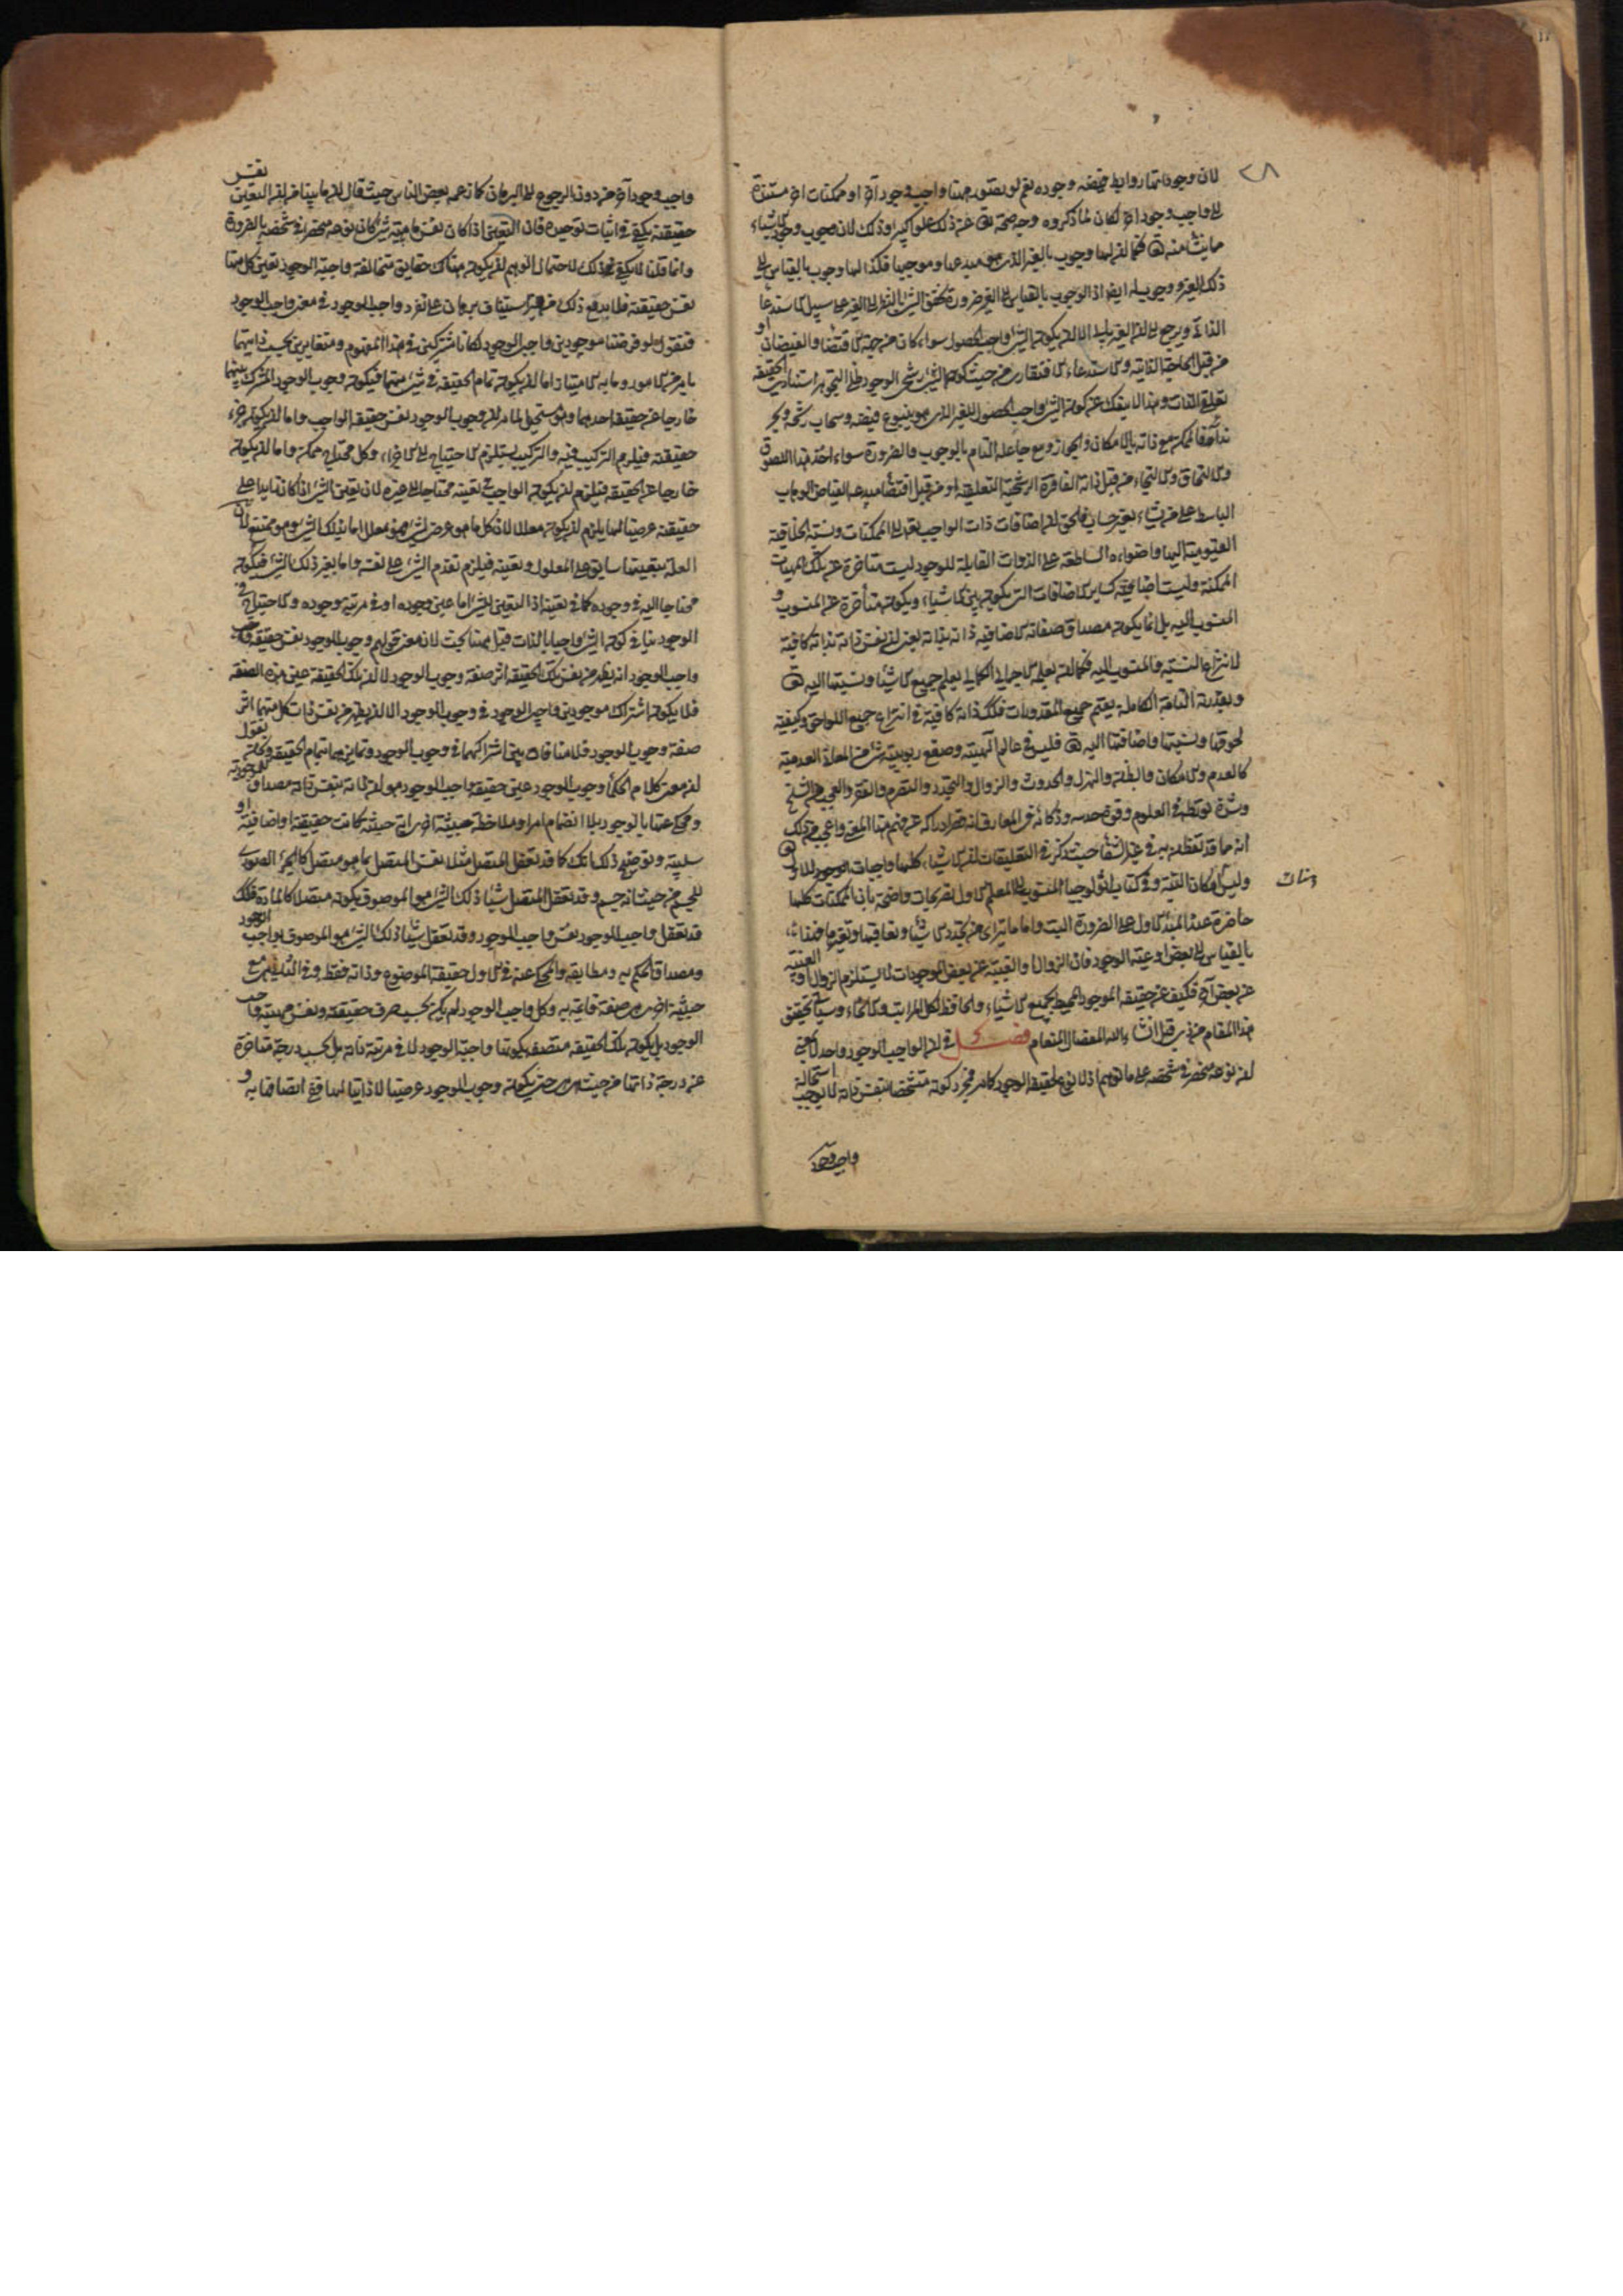 ٢٨
لان وجوداتها روابط فيضه وجوده نعم لو تصور ههنا واجب وجود آخر او ممكنات اخر مستندة
الى واجب وجود اخر لكان لما ذكروه وجه صحة تعالى عن ذلك علوا كبيرا وذلك لان وجوب وجود كل شيء
مما ينشأ منه تعالى فكما ان لها وجوب بالغير الذي هو مبدعها وموجبها فكذا لها وجوب بالقياس الى
ذلك الغير ووجوب له ايضا اذ الوجوب بالقياس الى الغير ضرورة تحقق الشيء بالنظر الى الغير على سبيل الاستدعاء
الذاتي ويرجع الى ان الغير يابى الا ان يكون الشيء واجب الحصول سواء كان من جهة الاقتضاء والفيضان او
من قبل الحاجة الذاتية والاستدعاء الافتقاري من حيث كون الشيء رشحي الوجود ظلي التجوهر استنادي الحقيقة
تعلقي الذات وهذا لا ينفك عن كون الشيء واجب الحصول للغير الذي هو ينبوع فيضه وسحاب رشحه وبحر
نداه فالممكن مع ذاته بالامكان والجواز ومع جاعله التام بالوجوب والضرورة سواء اخذ هذا اللصوق
والالتحاق والالتجاء من قبل ذاته الفاقرة الرشحية التعلقية او من قبل اقتضاء مبدعه الفياض الوهاب
الباسط على من يشاء بغير حساب فالحق ان اضافات ذات الواجب تعالى الى الممكنات ونسبة الخلاقية
القيومية اليها واضواءه الساطعة على الذوات القابلة للوجود ليست متأخرة عن تلك المهيات
الممكنة وليست اضافته كسائر الاضافات التي يكون بين الاشياء ويكون متأخرة عن المنسوب و
المنسوب اليه بل انما يكون مصداق صفاته الاضافية ذاته بذاته يعني ان نفس ذاته بذاته كافية
لانتزاع النسبة والمنسوب اليه فكما انه بعلمه الاجمالي الكمالي يعلم جميع الاشياء ونسبتها اليه تعالى
وبقدرته التامة الكاملة يقيم جميع المقدورات فكذلك ذاته كافية في انتزاع جميع اللواحق وكيفية
لحوقها ونسبتها واضافتها اليه تعالى فليس في عالم الهيته وصقع ربوبيته شيء من المعاني العدمية
كالعدم والامكان والبطلة والهزل والحدوث والزوال والتجدد والتصرم والفقر والعجب من الشيخ
وشدة تورطه في العلوم وقوة حدسه وذكائه في المعارف انه قصر ادراكه عن فهم هذا المعنى واعجب من ذلك
انه مما قد تفطن به في غير الشفا حيث ذكر في التعليقات ان الاشياء كلها واجبات الوجود للاول تعالى
وليس هناك امكان البتة وفي كتاب اثولوجيا المنسوب الى المعلم الاول تصريحات واضحة بان الممكنات كلها
حاضرة عند المبدا الاول على الضرورة البت واما ما يتراى من تجدد الاشياء وتعاقبها وتغيرها فهذا
بالقياس الى بعض اوعية الوجود فان الزوال والغيبة عن بعض الموجودات لا يستلزم الزوال و الغيبة
عن بعض آخر فكيف عن حقيقة الموجود المحيط بجميع الاشياء والحافظ لكل المراتب والانحاء وسيأتي تحقيق
هذا المقام من ذي قبل ان شاء الله المفضال المنعام فصل في ان الواجب الوجود واحد لا بمعنى
ان نوعه منحصر في شخصه على ما توهم اذ لا نوع لحقيقة الوجود كما مر فمجرد كونه متشخصا بنفس ذاته لا يوجب استحالة
واجب وجود
واجب وجود آخر من دون الرجوع الى البرهان كما زعمه بعض الناس حيث قال ان ما بينا من ان التعين نفس
حقيقته يكفي في اثبات توحيده فان التعين اذا كان نفس ماهية شيء كان نوعه منحصرا في شخصه بالضرورة
وانما قلنا لا يكفي ذلك لاحتمال الوهم ان يكون هناك حقايق متخالفة واجبة الوجود تعين كل منها
نفس حقيقته فلا يدفع ذلك من استيناف برهان على تفرد واجب الوجود في معنى واجب الوجود
فنقول لو فرضنا موجودين واجبي الوجود لكانا مشتركين في هذا المفهوم ومتغايرين بحسب ذاتيهما
بامر من الامور وما به الامتياز اما ان يكون تمام الحقيقة في شيء منهما فيكون وجوب الوجود المشترك بينهما
خارجا عن حقيقة احدهما وهو مستحيل لما مر ان وجوب الوجود نفس حقيقة الواجب واما ان يكون جزء
حقيقته فيلزم التركيب فيه والتركيب يستلزم الاحتياج الى الاجزاء وكل محتاج ممكن واما ان يكون
خارجا عن الحقيقة فيلزم ان يكون الواجب في تعينه محتاجا الى غيره لان تعين الشيء اذا كان زايدا على
حقيقته عرضيا لها يلزم ان يكون معللا لان كل ما هو عرضي لشيء فهو معلل اما بذلك الشيء وهو ممتنع لان
العلة بتعينها سابق على المعلول وتعينه فيلزم تقدم الشيء على نفسه واما بغير ذلك الشيء فيكون
محتاجا اليه في وجوده كما في تعينه اذ التعين للشيء اما عين وجوده او في مرتبة وجوده والاحتياج في
الوجود ينافي كون الشيء واجبا بالذات قيل ههنا بحث لان معنى قولهم وجوب الوجود نفس حقيقة واجب
واجب الوجود انه يظهر من نفس تلك الحقيقة اثر صفة وجوب الوجود لا ان تلك الحقيقة عين هذه الصفة
فلا يكون اشتراك موجودين واجبي الوجود في وجوب الوجود الا ان يظهر من نفس ذات كل منهما اثر
صفة وجوب الوجود فلا منافاة بين اشتراكهما في وجوب الوجود وتمايزهما بتمام الحقيقة ولكنا نقول
ان معنى كلام الحكماء وجوب الوجود عين حقيقة واجب الوجود هو ان ذاته بنفس ذاته مصداق لموجودية
ومحكي عنها بالوجود بلا انضمام امر او ملاحظة حيثية اخرى اية حيثية كانت حقيقية او اضافية او
سلبية وتوضيح ذلك انك كما قد تعقل المتصل مثلا نفس المتصل بما هو متصل كالجزء الصوري
للجسم من حيث انه جسم وقد تعقل المتصل شيئا ذلك الشيء هو الموصوف بكونه متصلا كالمادة فكذلك
قد تعقل واجب الوجود نفس واجب الوجود وقد تعقل شيئا ذلك الشيء هو الموصوف بواجب الوجود
ومصداق الحكم به ومطابقه والمحكي عنه في الاول حقيقة الموضوع وذاته فقط وفي الثاني هي مع
حيثية اخرى هي صفة قائمة به وكل واجب الوجود لم يكن بحسب صرف حقيقته ونفس مهيته واجب
الوجود بل يكون تلك الحقيقة متصف بكونها واجبة الوجود لا في مرتبة ذاته بل بحسب درجة متأخرة
عن درجة ذاتها من حيث هي هي حتى يكون وجوب الوجود عرضيا لا ذاتيا لها ففي اتصافها به و